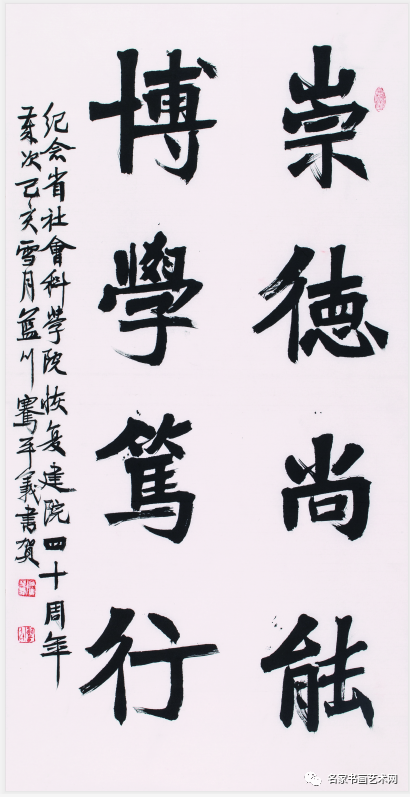 崇德尚能
博學篤行
紀念省社會科學院恢复建院四十周年
歲次己亥雪月藍川騫平義書賀
名家书画艺术网